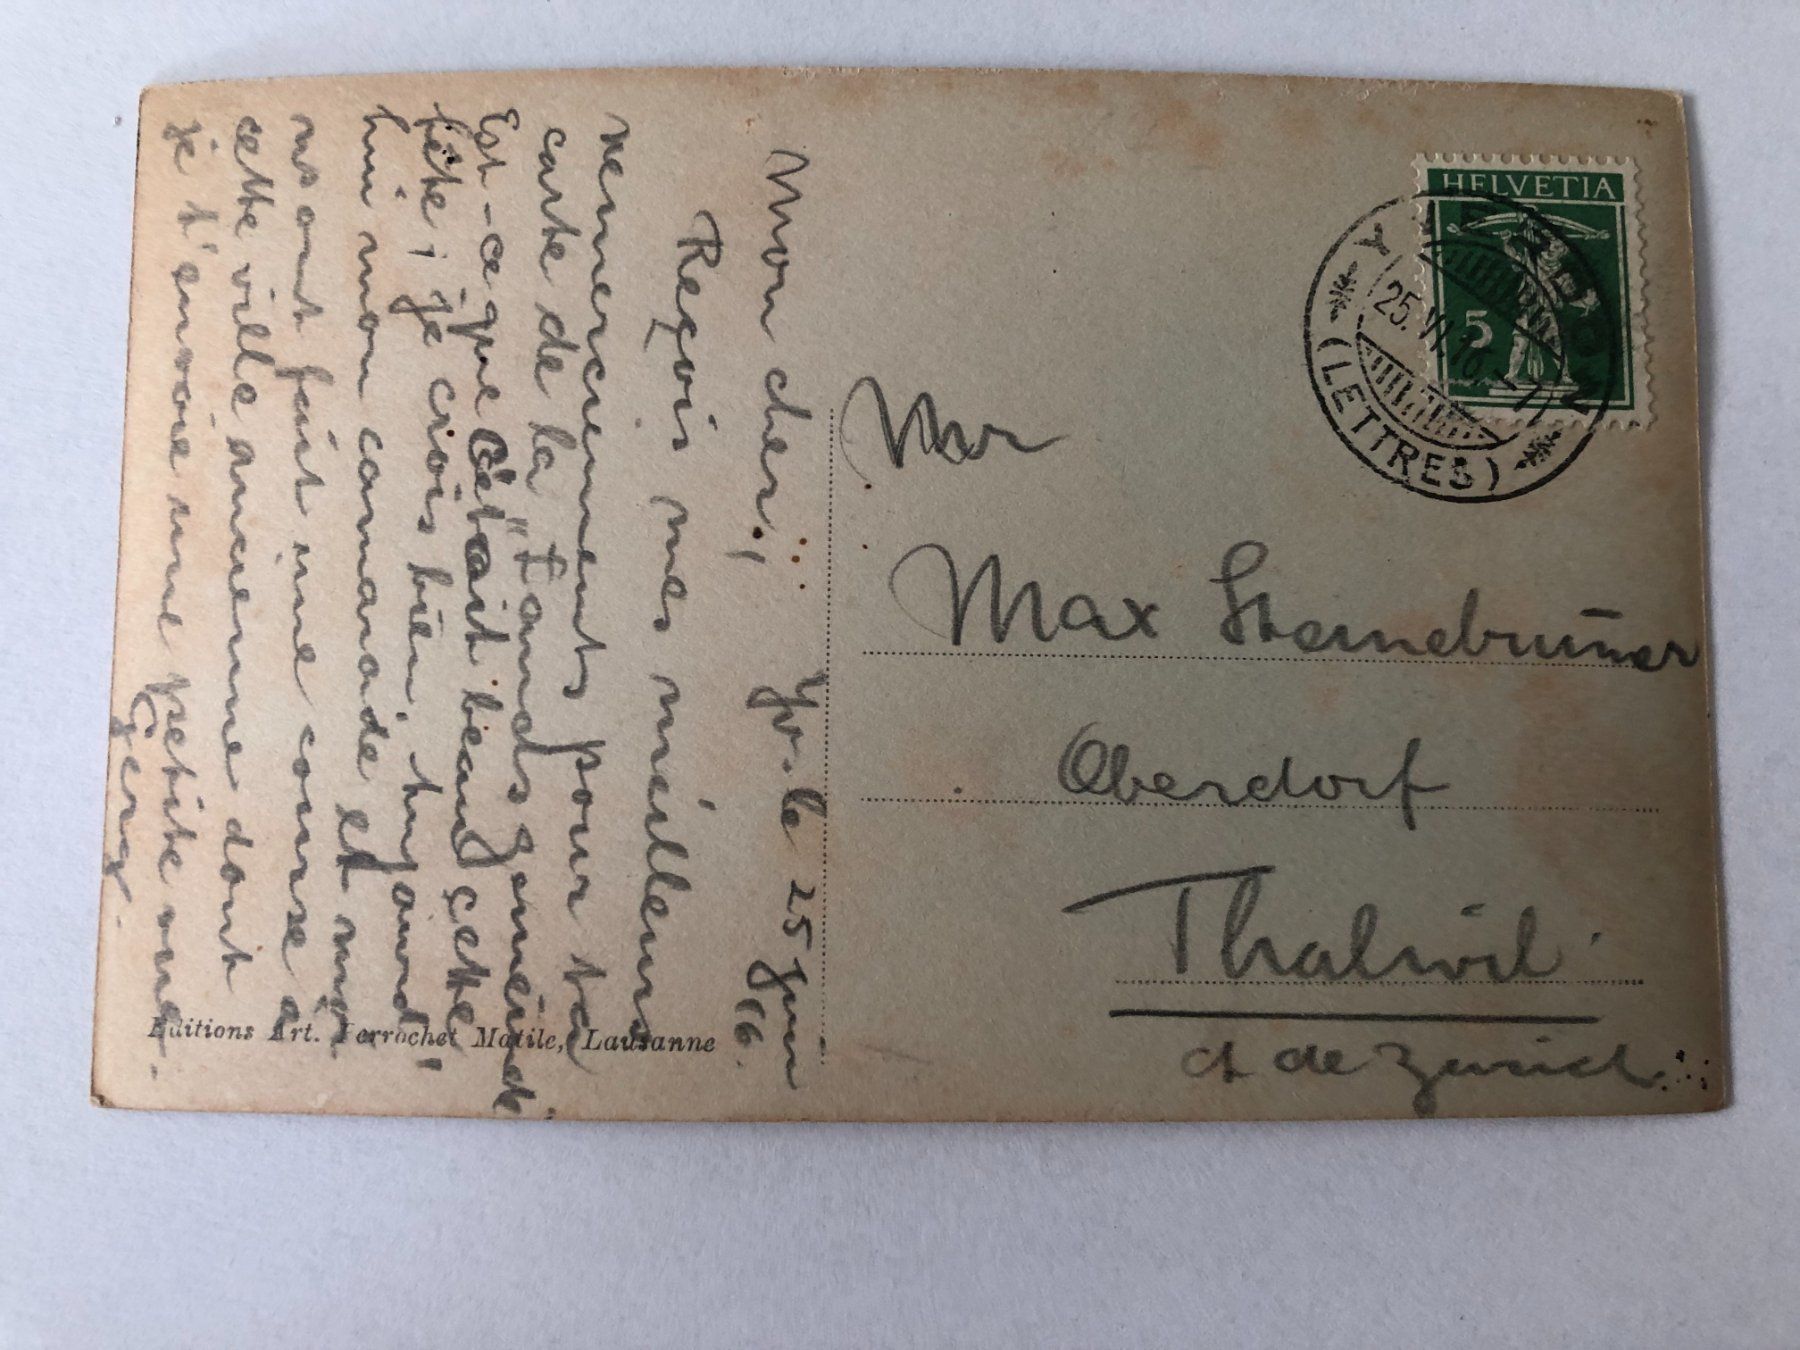 HELVETIA
5
YVERDON
25. VI. 16. - 7
(LETTRES)
Mr
Max Sternebrunner
Oberdorf
Thalwil
ct de Zurich
Yv. le 25 Juin
16.
Mon cher,
Reçois mes meilleurs
remerciements pour ta
carte de la "Lands gemeinde
Est-ce que c'était beau cette
fête; je crois bien. Aujourd'
hui mon camarade et moi
ns ont fait une course à
cette ville ancienne dont
je t'envoie une petite vue.
Georg.
Editions Art. Perrochet Matile, Lausanne